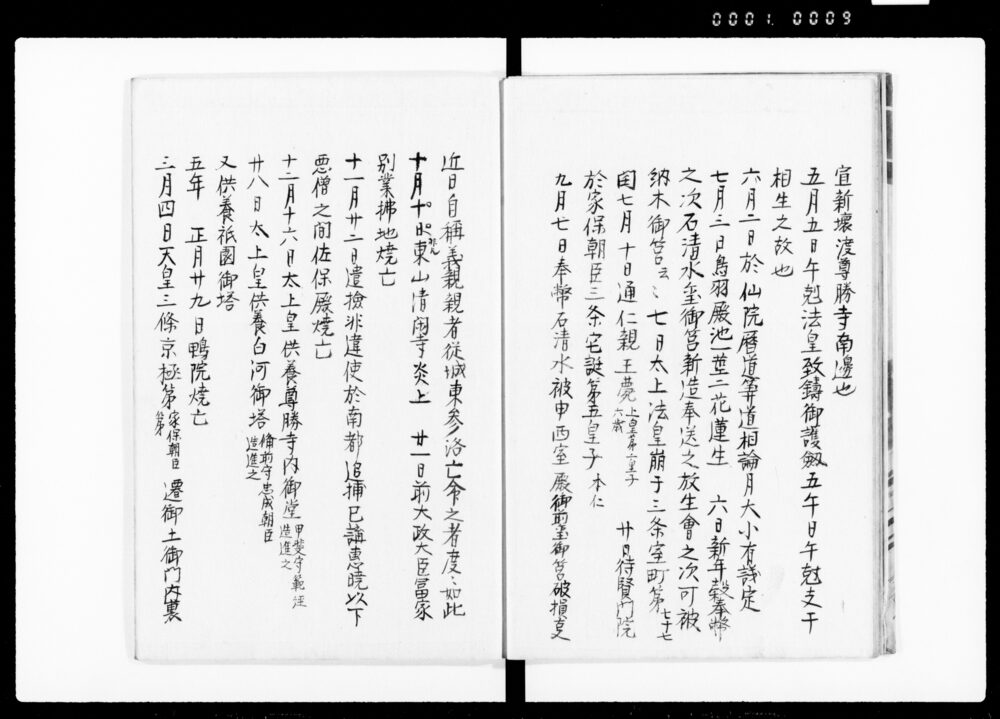 0001 0009
宜新壊渡尊勝寺南邊也
五月五日午剋法皇致鑄御護劔五午日午剋支干
相生之故也
六月二日於仙院暦道筭道相論月大小有議定
七月三日鳥羽殿池一莖二花蓮生 六日新年穀奉幣
之次石清水璽御筥新造奉送之放生會之次可被
納木御筥云〻七日太上法皇崩于三条室町第七十七
閏七月十日通仁親王薨上皇第二皇子六歳 廿日待賢門院
於家保朝臣三条宅誕第五皇子本仁
九月七日奉幣石清水被申西室殿御前璽御筥破損
近日自稱義親者從城東参洛亡命之者度〻如此
十月十日東山清閑寺炎上 廿一日前大政大臣冨家
別業拂地焼亡
十一月廿二日遣撿非違使於南都追捕已講惠暁以下
悪僧之間佐保殿焼亡
十二月十六日太上皇供養尊勝寺内御堂甲斐守範 造進之
廿八日太上皇供養白河御塔備前守忠成朝臣造進之
又供養祇園御塔
五年 正月廿九日鴨院焼亡
三月四日天皇三條京極第家保朝臣第遷御土御門内裏